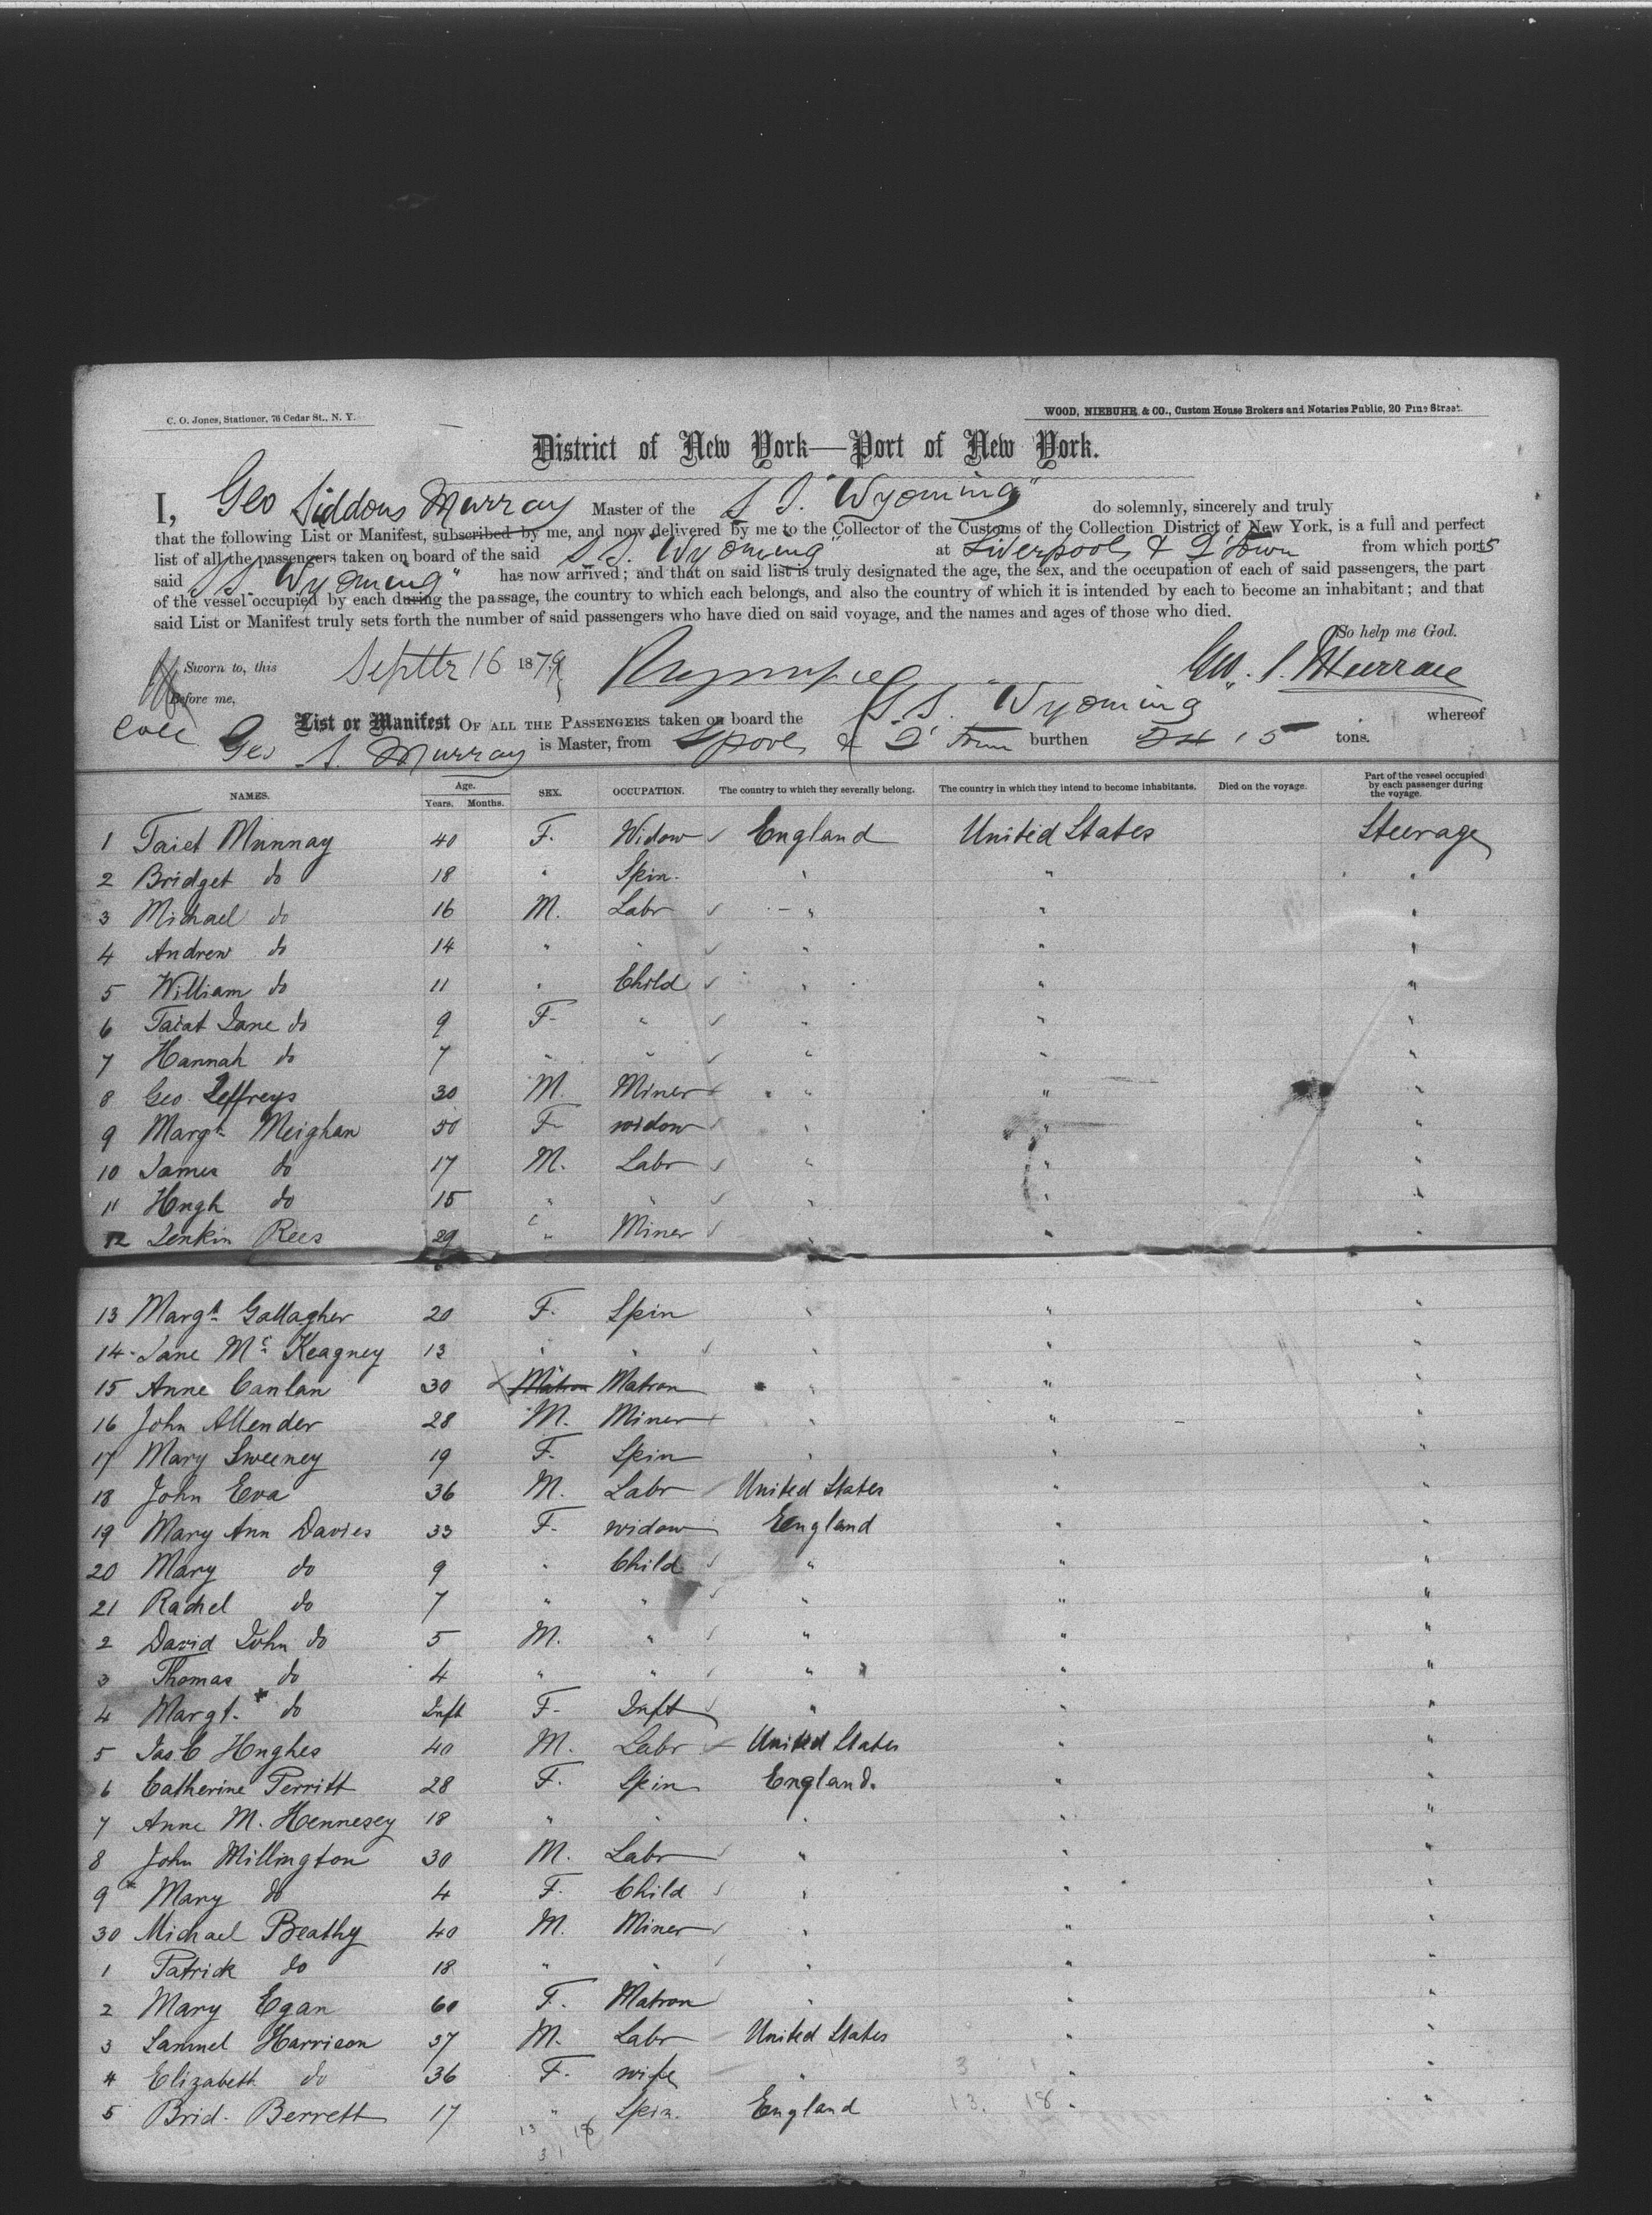 C. O. Jones, Stationer, 76 Cedar St., N. Y.
WOOD, NIEBUHR & CO., Custom House Brokers and Notaries Public, 20 Pine Street.
District of New York—Port of New York.
I, Geo Siddons Murray Master of the S S. "Wyoming" do solemnly, sincerely and truly
that the following List or Manifest, subscribed by me, and now delivered by me to the Collector of the Customs of the Collection District of New York, is a full and perfect
list of all the passengers taken on board of the said S S. "Wyoming" at Liverpool & Q'Town from which ports
said S S. "Wyoming" has now arrived; and that on said list is truly designated the age, the sex, and the occupation of each of said passengers, the part
of the vessel occupied by each during the passage, the country to which each belongs, and also the country of which it is intended by each to become an inhabitant; and that
said List or Manifest truly sets forth the number of said passengers who have died on said voyage, and the names and ages of those who died.
So help me God.
Sworn to, this Septbr 16 1879 Geo. S. Murray
Before me,
List or Manifest OF ALL THE PASSENGERS taken on board the S.S. "Wyoming" whereof
Geo S. Murray is Master, from Lpool & Q'Town burthen tons.
NAMES. Age. Years. Months. SEX. OCCUPATION. The country to which they severally belong. The country in which they intend to become inhabitants. Died on the voyage. Part of the vessel occupied by each passenger during the voyage.
1 Munnay 40 F. Widow England United States Steerage
2 Bridget do 18 " Spin. " " "
3 Michael do 16 M. Labr " " "
4 Andrew do 14 " " " " "
5 William do 11 " Child " " "
6 Jane do 9 F " " " "
7 Hannah do 7 " " " " "
8 Geo Jeffreys 30 M. Miner " " "
9 Margt Meighan 50 F widow " " "
10 James do 17 M. Labr " " "
11 Hugh do 15 " " " " "
12 Jenkin Rees 29 " Miner " " "
13 Margt Gallagher 20 F. Spin " " "
14 Jane Mc Keagney 13 " " " " "
15 Anne Canlan 30 Matron Matron " " "
16 John Allender 28 M. Miner " " "
17 Mary Sweeney 19 F. Spin " " "
18 John Eva 36 M. Labr United States " "
19 Mary Ann Davies 33 F. widow England " "
20 Mary do 9 " Child " " "
21 Rachel do 7 " " " " "
2 David John do 5 M. " " " "
3 Thomas do 4 " " " " "
4 Margt. do Inft F. Inft " " "
5 Jas C Hughes 40 M. Labr United States " "
6 Catherine Perritt 28 F. Spin England. " "
7 Anne M. Hennesey 18 " " " " "
8 John Millington 30 M. Labr " " "
9 Mary do 4 F. Child " " "
30 Michael Beathy 40 M. Miner " " "
1 Patrick do 18 " " " " "
2 Mary Egan 60 F. Matron " " "
3 Samuel Harrison 37 M. Labr United States " "
4 Elizabeth do 36 F. wife " " "
5 Brid. Berrett 17 " Spin. England " "
3 1
13. 18
13 18
31